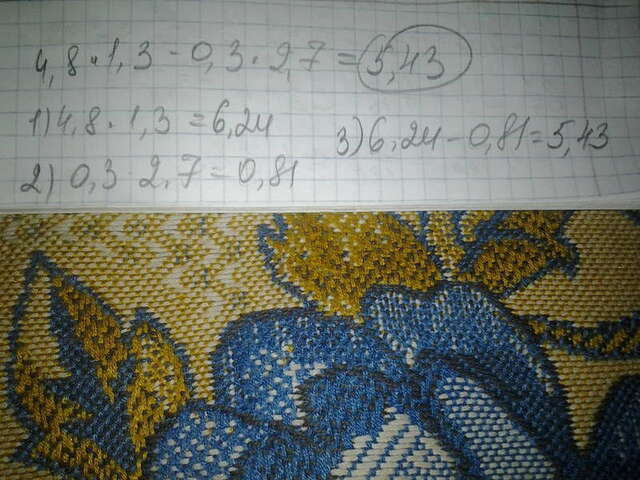 4,8·1,3-0,3·2,7=5,43
1) 4,8·1,3=6,24
2) 0,3·2,7=0,81
3) 6,24-0,81=5,43